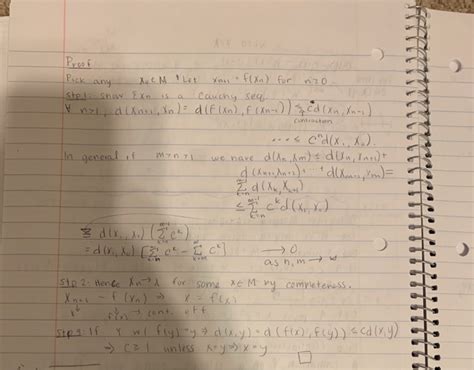 Proof
Pick any x₀ ∈ M. Let xₙ₊₁ = f(xₙ) for n≥0.
Step 1: show {xₙ} is a Cauchy seq.
∀ n>1, d(xₙ₊₁, xₙ) = d(f(xₙ), f(xₙ₋₁)) ≤ cd(xₙ, xₙ₋₁)
contraction
... ≤ cⁿd(x₁, x₀).
In general if m>n>1 we have d(xₙ, xₘ) ≤ d(xₙ, xₙ₊₁)+
d(xₙ₊₁, xₙ₊₂)+ d(xₘ₋₁, xₘ)=
Σ d(xₖ, xₖ₊₁)
≤ Σ cᵏ d(x₁, x₀)
≤ d(x₁, x₀) (Σ cᵏ)
= d(x₁, x₀) [Σ cᵏ - Σ cᵏ] → 0
as n, m → ∞
Step 2: Hence xₙ → x for some x ∈ M by completeness.
xₙ₊₁ = f(xₙ) ⇒ x = f(x)
cont. of f
Step 3: If y w/ f(y)=y ⇒ d(x,y) = d(f(x), f(y)) ≤ cd(x,y)
⇒ c≥1 unless x=y ⇒ x=y